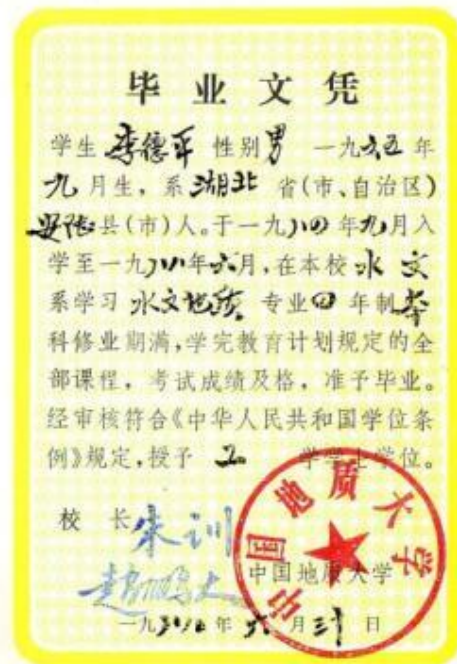 毕业文凭
学生 李德平 性别 男 一九六五年
九月生,系 湖北 省(市、自治区)
安陆县(市)人。于一九八四年九月入
学至一九八八年六月,在本校 水文
系学习 水文地质 专业四年制本
科修业期满,学完教育计划规定的全
部课程,考试成绩及格,准予毕业。
经审核符合《中华人民共和国学位条
例》规定,授予 工 学学士学位。
校 长 朱训
赵鹏大
中国地质大学
中国地质大学
一九八八年 六 月 三十 日